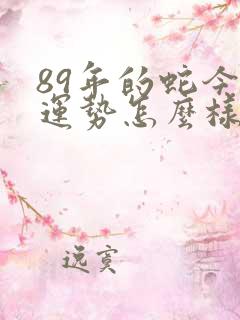 89年的蛇今
運勢怎麼樣
逸賓